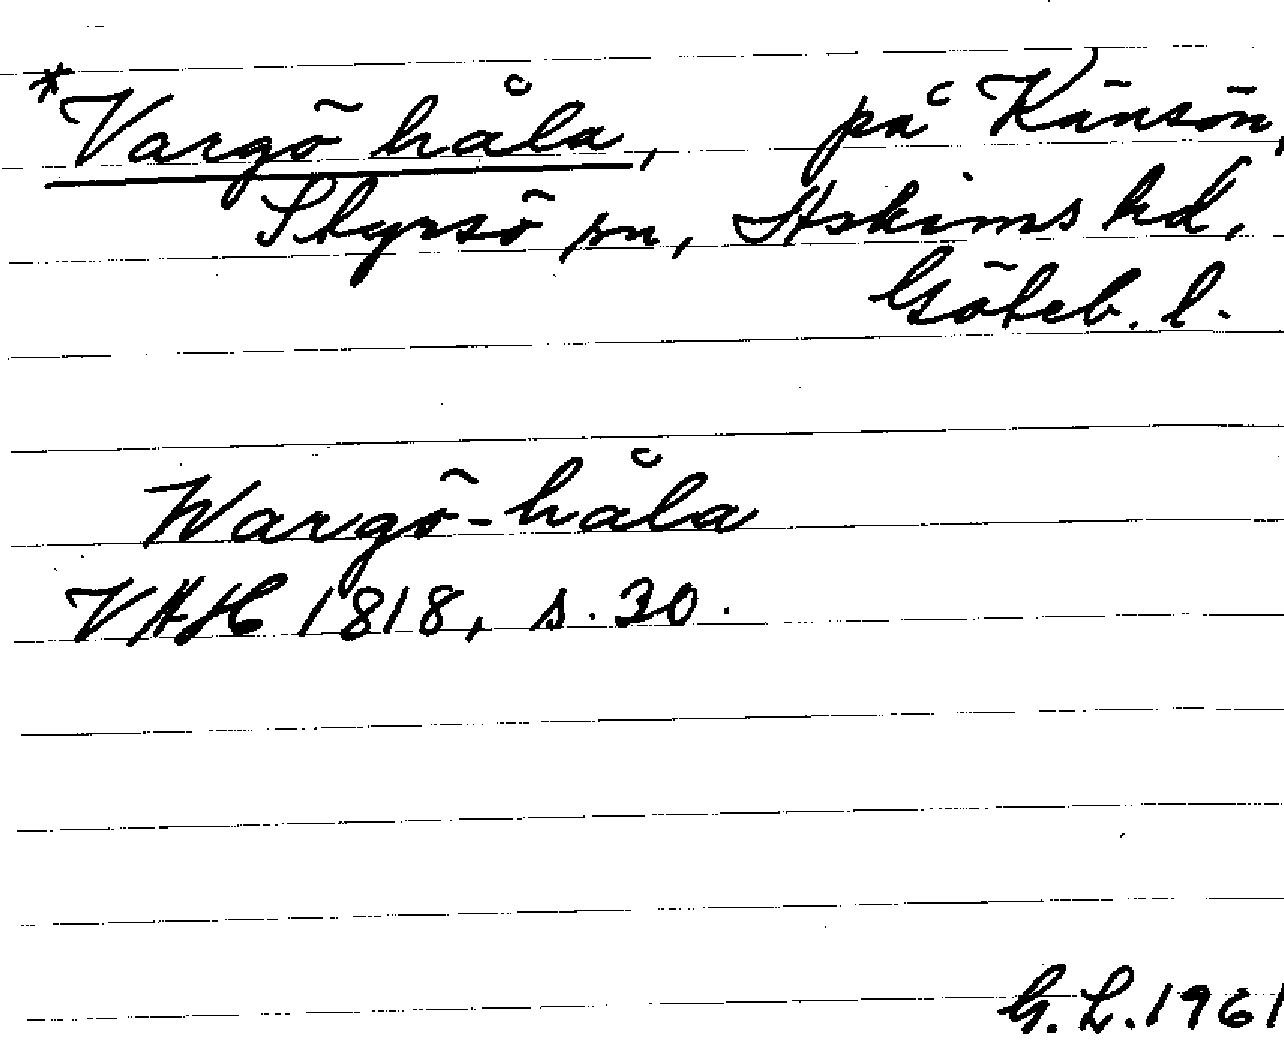 *Vargö håla, på Känsön,
Styrsö sn, Askims hd,
Göteb. l.
Wargö-håla
VAH 1818, s. 30.
G. L. 1961